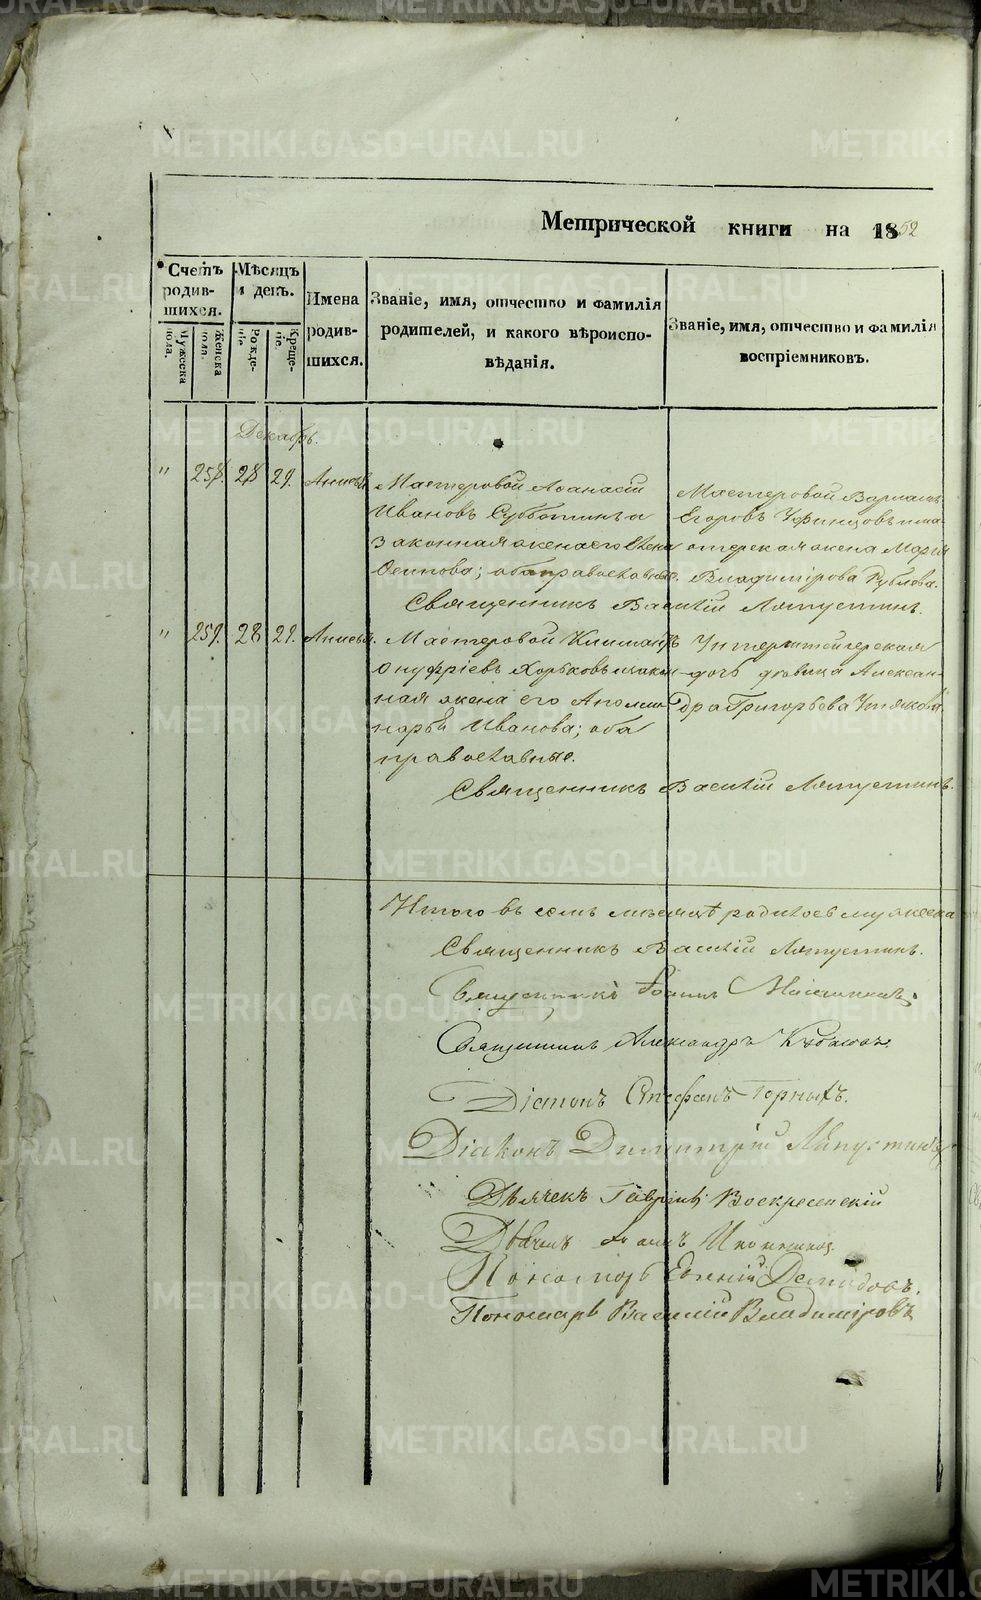 METRIKI.GASO-URAL.RU
Метрической книги на 1852
Счетъ родив-шихся.
Мѣсяцъ и день.
Имена родив-шихся.
Званіе, имя, отчество и фамилія родителей, и какого вѣроиспо-вѣданія.
Званіе, имя, отчество и фамилія воспріемниковъ.
Мужеска пола.
Женска пола.
Рожде-ніе.
Креще-ніе.
Декабрь.
" 258. 28 29.
Мастеровой Аѳанасій
Ивановъ Субботинъ и
законная жена его Елена
Осипова; оба православные.
Мастеровой
Егоровъ и ма-
стерская жена Марія
Владимірова Рублева.
Священникъ Василій Ляпустинъ.
" 259. 28 29.
Мастеровой
Онуфріевъ Хорьковъ и закон-
ная жена его Аполли-
нарья Иванова; оба
православные.
Унтершейгерская
дочь девица Алексан-
дра Григорьева
Священникъ Василій Ляпустинъ.
Итого въ семъ месяцѣ родилось мужеска
Священникъ Василій Ляпустинъ.
Священникъ Іоаннъ
Священникъ Александръ
Діаконъ Стефанъ Горныхъ.
Діаконъ Димитрій Ляпустинъ
Дьячекъ Гавріилъ Воскресенскій
Дьячекъ
Пономарь Евгеній Демидовъ.
Пономарь Василій Владиміровъ